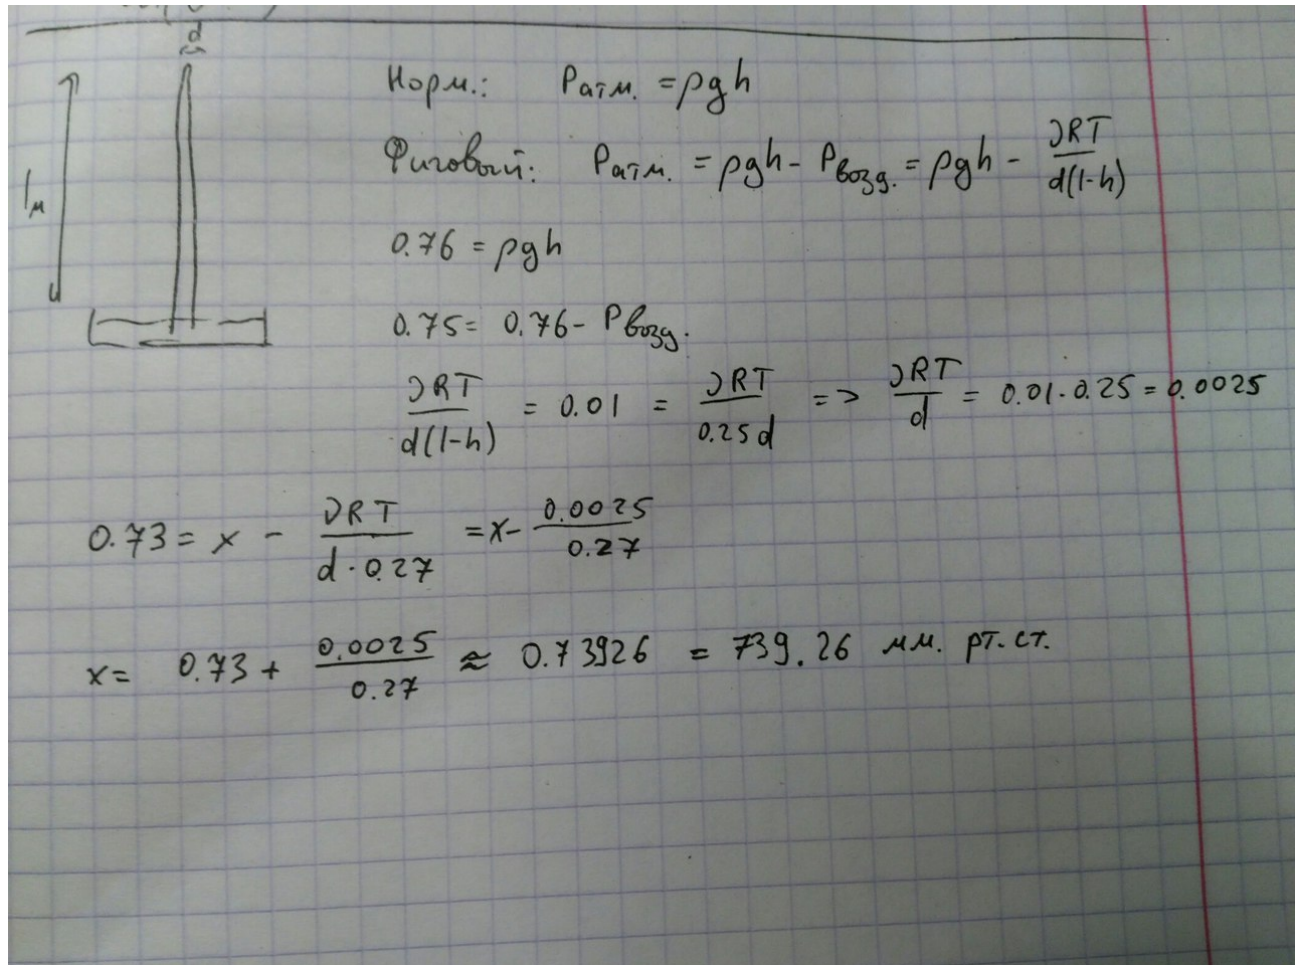 d
1м
Норм.: Pатм. = ρgh
Фиговый: Pатм. = ρgh - Pвозд. = ρgh - νRT / d(1-h)
0.76 = ρgh
0.75 = 0.76 - Pвозд.
νRT / d(1-h) = 0.01 = νRT / 0.25d => νRT / d = 0.01·0.25 = 0.0025
0.73 = x - νRT / d·0.27 = x - 0.0025 / 0.27
x = 0.73 + 0.0025 / 0.27 ≈ 0.73926 = 739.26 мм. рт. ст.